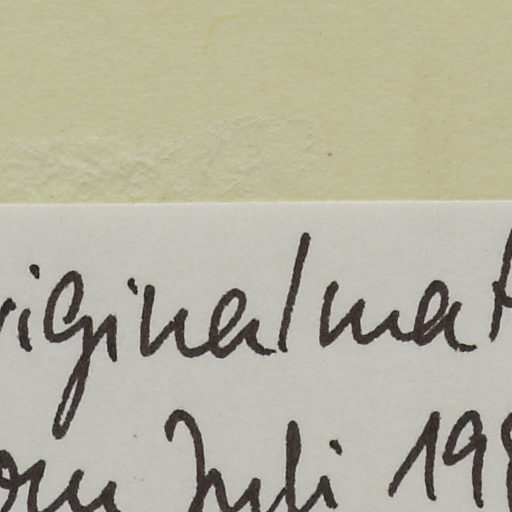 riginalmat
om Juli 198